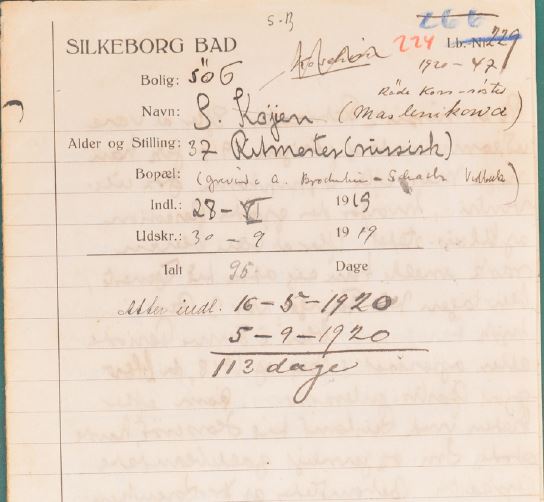 S-B
266
SILKEBORG BAD
224 Lb. Nr. 229
1920-47
Bolig: 506
Røde Kors-søster
Navn: S. Køjen (Maslenikowa)
Alder og Stilling: 37 Ritmester (russisk)
Bopæl: (grevinde A. Brockenhuus-Schack
Indl.: 28-VI 1919
Udskr.: 30-9 1919
Ialt 95 Dage
Atter indl. 16-5-1920
5-9-1920
113 dage